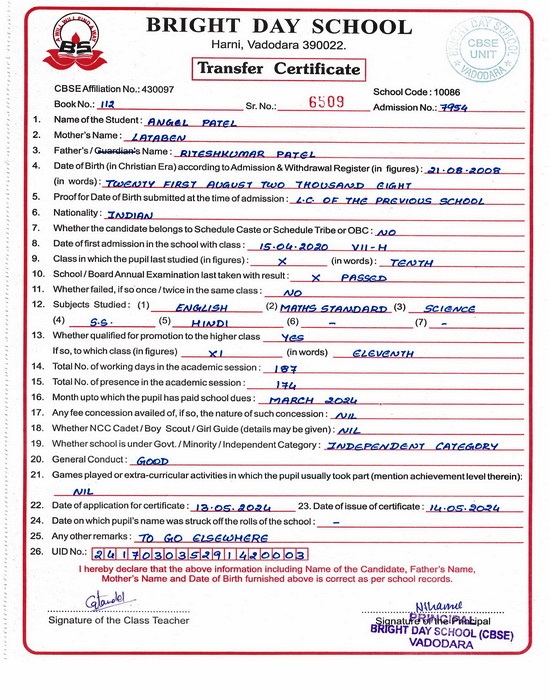 A WILL WILL FIND A WAY
BS
BRIGHT DAY SCHOOL
Harni, Vadodara 390022.
Transfer Certificate
BRIGHT DAY SCHOOL
CBSE
UNIT
VADODARA
CBSE Affiliation No.: 430097 School Code : 10086
Book No.: 112 Sr. No.: 6509 Admission No.: 7954
1. Name of the Student : ANGEL PATEL
2. Mother's Name : LATABEN
3. Father's / Guardian's Name : RITESHKUMAR PATEL
4. Date of Birth (in Christian Era) according to Admission & Withdrawal Register (in figures) : 21-08-2008
(in words) : TWENTY FIRST AUGUST TWO THOUSAND EIGHT
5. Proof for Date of Birth submitted at the time of admission : L.C. OF THE PREVIOUS SCHOOL
6. Nationality : INDIAN
7. Whether the candidate belongs to Schedule Caste or Schedule Tribe or OBC : NO
8. Date of first admission in the school with class : 15-04-2020 VII-H
9. Class in which the pupil last studied (in figures) : X (in words) : TENTH
10. School / Board Annual Examination last taken with result : X PASSED
11. Whether failed, if so once / twice in the same class : NO
12. Subjects Studied : (1) ENGLISH (2) MATHS STANDARD (3) SCIENCE
(4) S.S. (5) HINDI (6) – (7) –
13. Whether qualified for promotion to the higher class YES
If so, to which class (in figures) XI (in words) ELEVENTH
14. Total No. of working days in the academic session : 187
15. Total No. of presence in the academic session : 174
16. Month upto which the pupil has paid school dues : MARCH 2024
17. Any fee concession availed of, if so, the nature of such concession : NIL
18. Whether NCC Cadet / Boy Scout / Girl Guide (details may be given) : NIL
19. Whether school is under Govt. / Minority / Independent Category : INDEPENDENT CATEGORY
20. General Conduct : GOOD
21. Games played or extra-curricular activities in which the pupil usually took part (mention achievement level therein):
NIL
22. Date of application for certificate : 13.05.2024 23. Date of issue of certificate : 14.05.2024
24. Date on which pupil's name was struck off the rolls of the school : –
25. Any other remarks : TO GO ELSEWHERE
26. UID No.: 241703035291420003
I hereby declare that the above information including Name of the Candidate, Father's Name,
Mother's Name and Date of Birth furnished above is correct as per school records.
Signature of the Class Teacher Signature of the Principal
PRINCIPAL
BRIGHT DAY SCHOOL (CBSE)
VADODARA